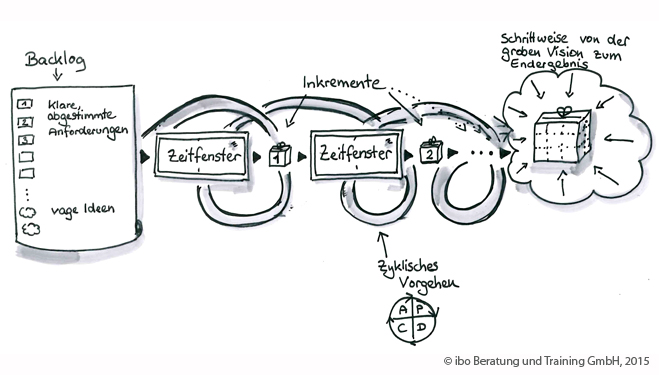 Backlog
1 Klare,
abgestimmte
2 Anforderungen
3
vage Ideen
Zeitfenster
1
Inkremente
Zeitfenster
2
Schrittweise von der
groben Vision zum
Endergebnis
Zyklisches
Vorgehen
A P
C D
© ibo Beratung und Training GmbH, 2015